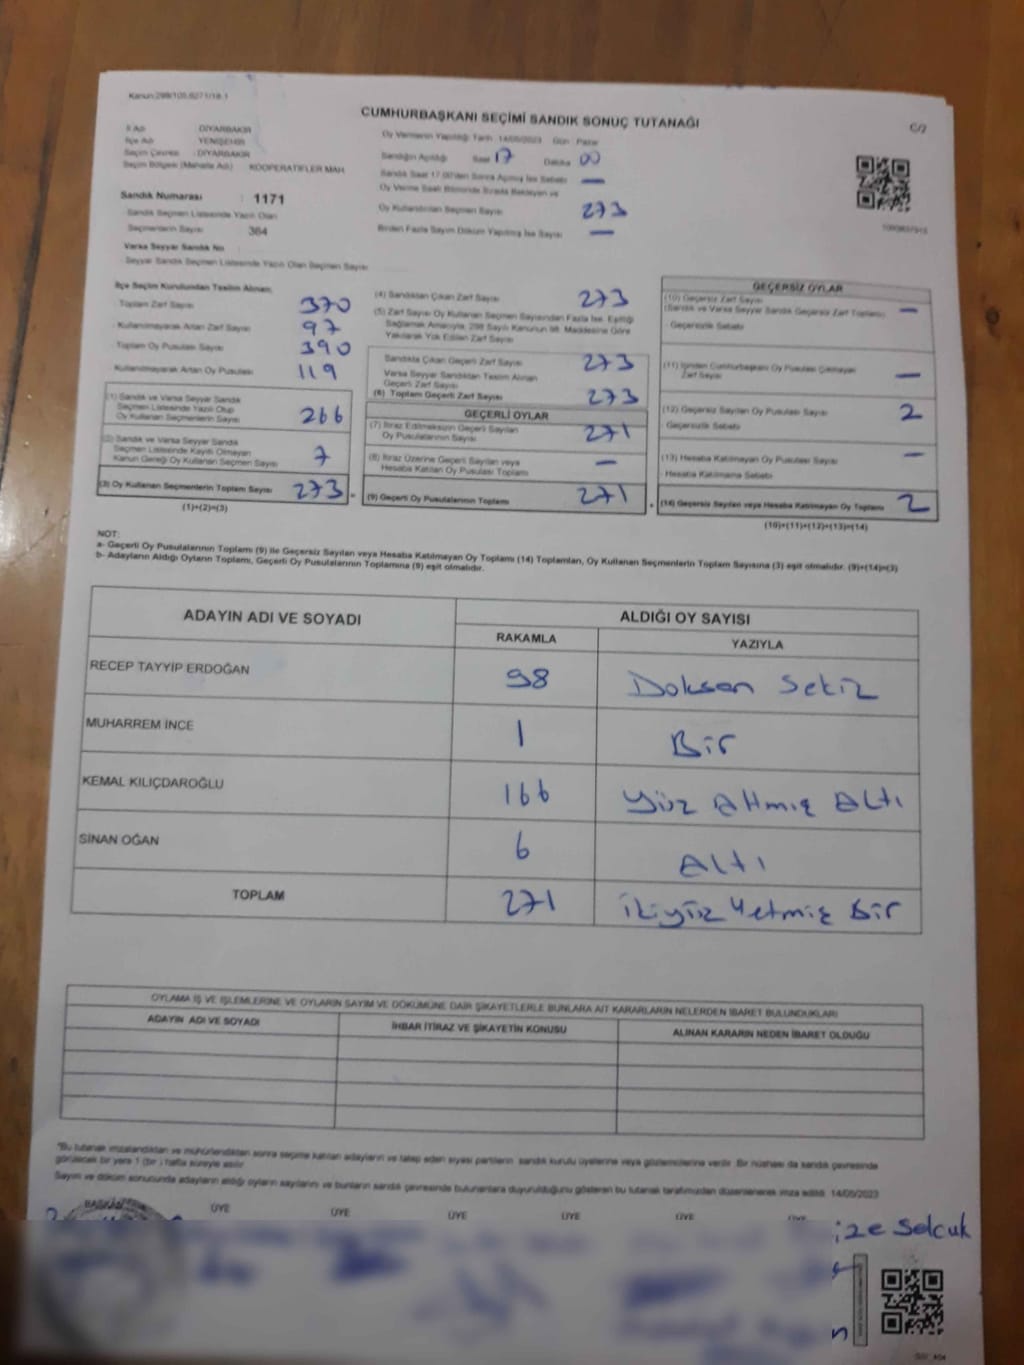 Kanun:298/105,6271/18.1
CUMHURBAŞKANI SEÇİMİ SANDIK SONUÇ TUTANAĞI
C/2
İl Adı : DİYARBAKIR
İlçe Adı : YENİŞEHİR
Seçim Çevresi : DİYARBAKIR
Seçim Bölgesi (Mahalle Adı) : KOOPERATİFLER MAH.
Sandık Numarası : 1171
Sandık Seçmen Listesinde Yazılı Olan
Seçmenlerin Sayısı : 364
Varsa Seyyar Sandık No :
Seyyar Sandık Seçmen Listesinde Yazılı Olan Seçmen Sayısı
Oy Vermenin Yapıldığı Tarih 14/05/2023 Gün Pazar
Sandığın Açıldığı Saat 17 Dakika 00
Sandık Saat 17.00'den Sonra Açılmış İse Sebebi —
Oy Verme Saati Bitiminde Sırada Bekleyen ve
Oy Kullandırılan Seçmen Sayısı 273
Birden Fazla Sayım Döküm Yapılmış İse Sayısı —
İlçe Seçim Kurulundan Teslim Alınan:
Toplam Zarf Sayısı 370
Kullanılmayarak Artan Zarf Sayısı 97
Toplam Oy Pusulası Sayısı 390
Kullanılmayarak Artan Oy Pusulası 119
(1) Sandık ve Varsa Seyyar Sandık
Seçmen Listesinde Yazılı Olup
Oy Kullanan Seçmenlerin Sayısı 266
(2) Sandık ve Varsa Seyyar Sandık
Seçmen Listesinde Kayıtlı Olmayan
Kanun Gereği Oy Kullanan Seçmen Sayısı 7
(3) Oy Kullanan Seçmenlerin Toplam Sayısı 273 =
(1)+(2)=(3)
(4) Sandıktan Çıkan Zarf Sayısı 273
(5) Zarf Sayısı Oy Kullanan Seçmen Sayısından Fazla İse, Eşitliği
Sağlamak Amacıyla, 298 Sayılı Kanunun 98. Maddesine Göre
Yakılarak Yok Edilen Zarf Sayısı
Sandıkta Çıkan Geçerli Zarf Sayısı 273
Varsa Seyyar Sandıktan Teslim Alınan
Geçerli Zarf Sayısı
(6) Toplam Geçerli Zarf Sayısı 273
GEÇERLİ OYLAR
(7) İtiraz Edilmeksizin Geçerli Sayılan
Oy Pusulalarının Sayısı 271
(8) İtiraz Üzerine Geçerli Sayılan veya
Hesaba Katılan Oy Pusulası Toplamı —
(9) Geçerli Oy Pusulalarının Toplamı 271 +
GEÇERSİZ OYLAR
(10) Geçersiz Zarf Sayısı
(Sandık ve Varsa Seyyar Sandık Geçersiz Zarf Toplamı) —
Geçersizlik Sebebi
(11) İçinden Cumhurbaşkanı Oy Pusulası Çıkmayan
Zarf Sayısı —
(12) Geçersiz Sayılan Oy Pusulası Sayısı 2
Geçersizlik Sebebi
(13) Hesaba Katılmayan Oy Pusulası Sayısı —
Hesaba Katılmama Sebebi
(14) Geçersiz Sayılan veya Hesaba Katılmayan Oy Toplamı 2
(10)+(11)+(12)+(13)=(14)
NOT:
a- Geçerli Oy Pusulalarının Toplamı (9) ile Geçersiz Sayılan veya Hesaba Katılmayan Oy Toplamı (14) Toplamları, Oy Kullanan Seçmenlerin Toplam Sayısına (3) eşit olmalıdır. (9)+(14)=(3)
b- Adayların Aldığı Oyların Toplamı, Geçerli Oy Pusulalarının Toplamına (9) eşit olmalıdır.
ADAYIN ADI VE SOYADI
ALDIĞI OY SAYISI
RAKAMLA YAZIYLA
RECEP TAYYİP ERDOĞAN 98 Doksan Sekiz
MUHARREM İNCE 1 Bir
KEMAL KILIÇDAROĞLU 166 Yüz Altmış Altı
SİNAN OĞAN 6 Altı
TOPLAM 271 İkiyüz Yetmiş Bir
OYLAMA İŞ VE İŞLEMLERİNE VE OYLARIN SAYIM VE DÖKÜMÜNE DAİR ŞİKAYETLERLE BUNLARA AİT KARARLARIN NELERDEN İBARET BULUNDUKLARI
ADAYIN ADI VE SOYADI İHBAR İTİRAZ VE ŞİKAYETİN KONUSU ALINAN KARARIN NEDEN İBARET OLDUĞU
*Bu tutanak imzalandıktan ve mühürlendikten sonra seçime katılan adayların ve talep eden siyasi partilerin sandık kurulu üyelerine veya gözlemcilerine verilir. Bir nüshası da sandık çevresinde
görülecek bir yere 1 (bir ) hafta süreyle asılır.
Sayım ve döküm sonucunda adayların aldığı oyların sayılarını ve bunların sandık çevresinde bulunanlara duyurulduğunu gösteren bu tutanak tarafımızdan düzenlenerek imza edildi. 14/05/2023
BAŞKAN ÜYE ÜYE ÜYE ÜYE ÜYE ÜYE
ize Selcuk